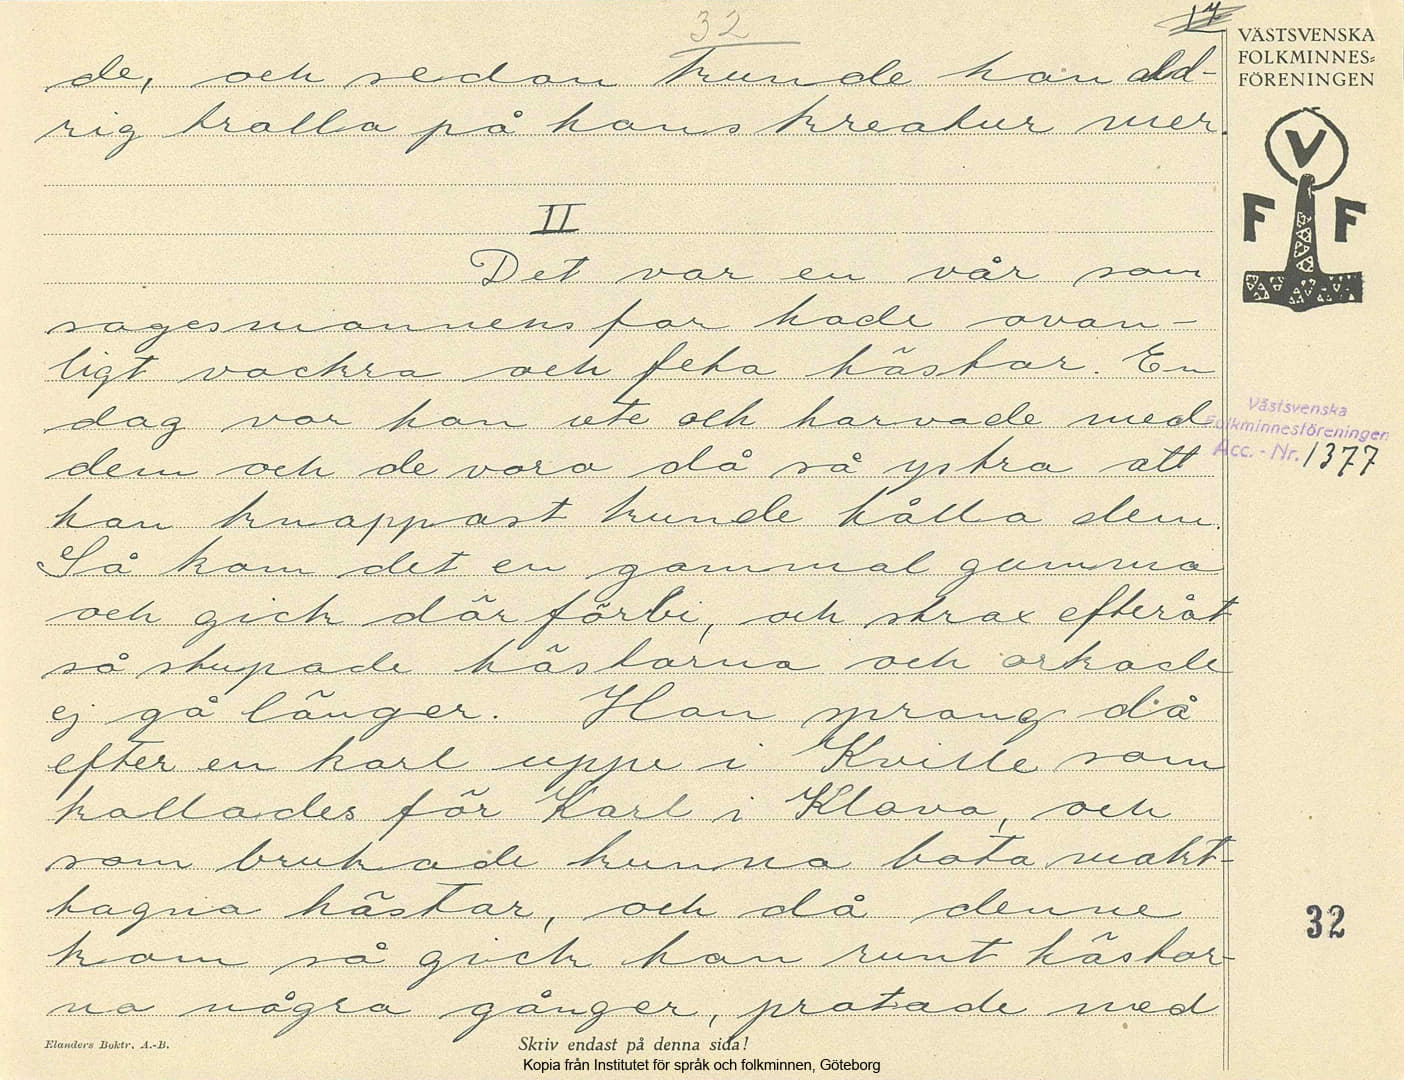 32
17
VÄSTSVENSKA
FOLKMINNES=
FÖRENINGEN
V
F F
de, och sedan kunde han ald-
rig tralla på hans kreatur mer.
II
Det var en vår som
sagesmannens far hade ovan-
ligt vackra och feta hästar. En
dag var han ute och harvade med
dem och de voro då så ystra att
han knappast kunde hålla dem.
Så kom det en gammal gumma
och gick där förbi, och strax efteråt
så stupade hästarna och orkade
ej gå länger. Han sprang då
efter en karl uppe i Kville som
kallades för Karl i Klava, och
som brukade kunna bota makt-
tagna hästar, och då denne
kom så gick han runt hästar-
na några gånger, pratade med
Västsvenska
Folkminnesföreningen
Acc. - Nr. 1377
32
Elanders Boktr. A.-B.
Skriv endast på denna sida!
Kopia från Institutet för språk och folkminnen, Göteborg